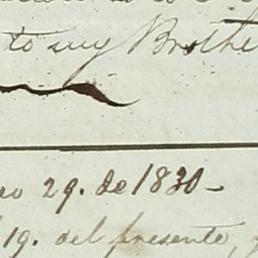 to my Brothe
29. de 1830
19. del presente,